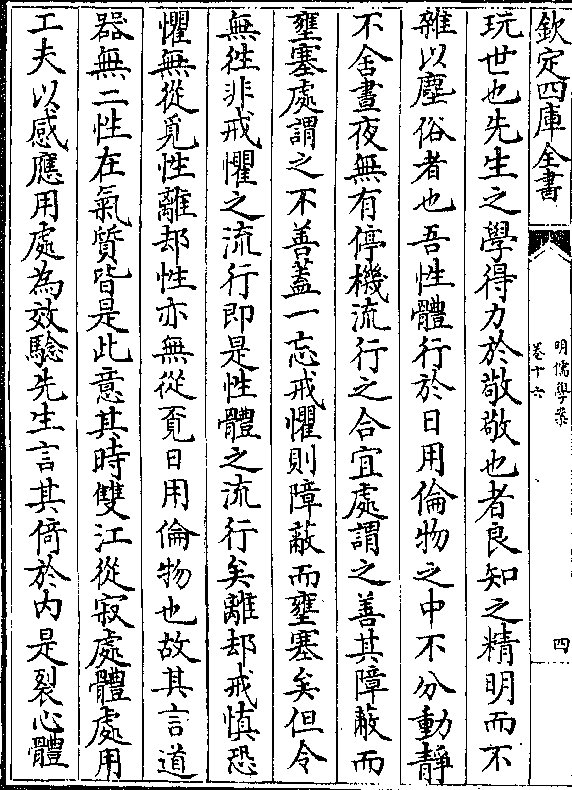 欽定四庫全書
明儒學案
卷十六
四
玩世也先生之學得力於敬敬也者良知之精明而不
雜以塵俗者也吾性體行於日用倫物之中不分動靜
不舍晝夜無有停機流行之合宜處謂之善其障蔽而
壅塞處謂之不善蓋一忘戒懼則障蔽而壅塞矣但令
無徃非戒懼之流行即是性體之流行矣離却戒慎恐
懼無從覓性離却性亦無從覓日用倫物也故其言道
器無二性在氣質皆是此意其時雙江從寂處體處用
工夫以感應用處為效驗先生言其倚於内是裂心體